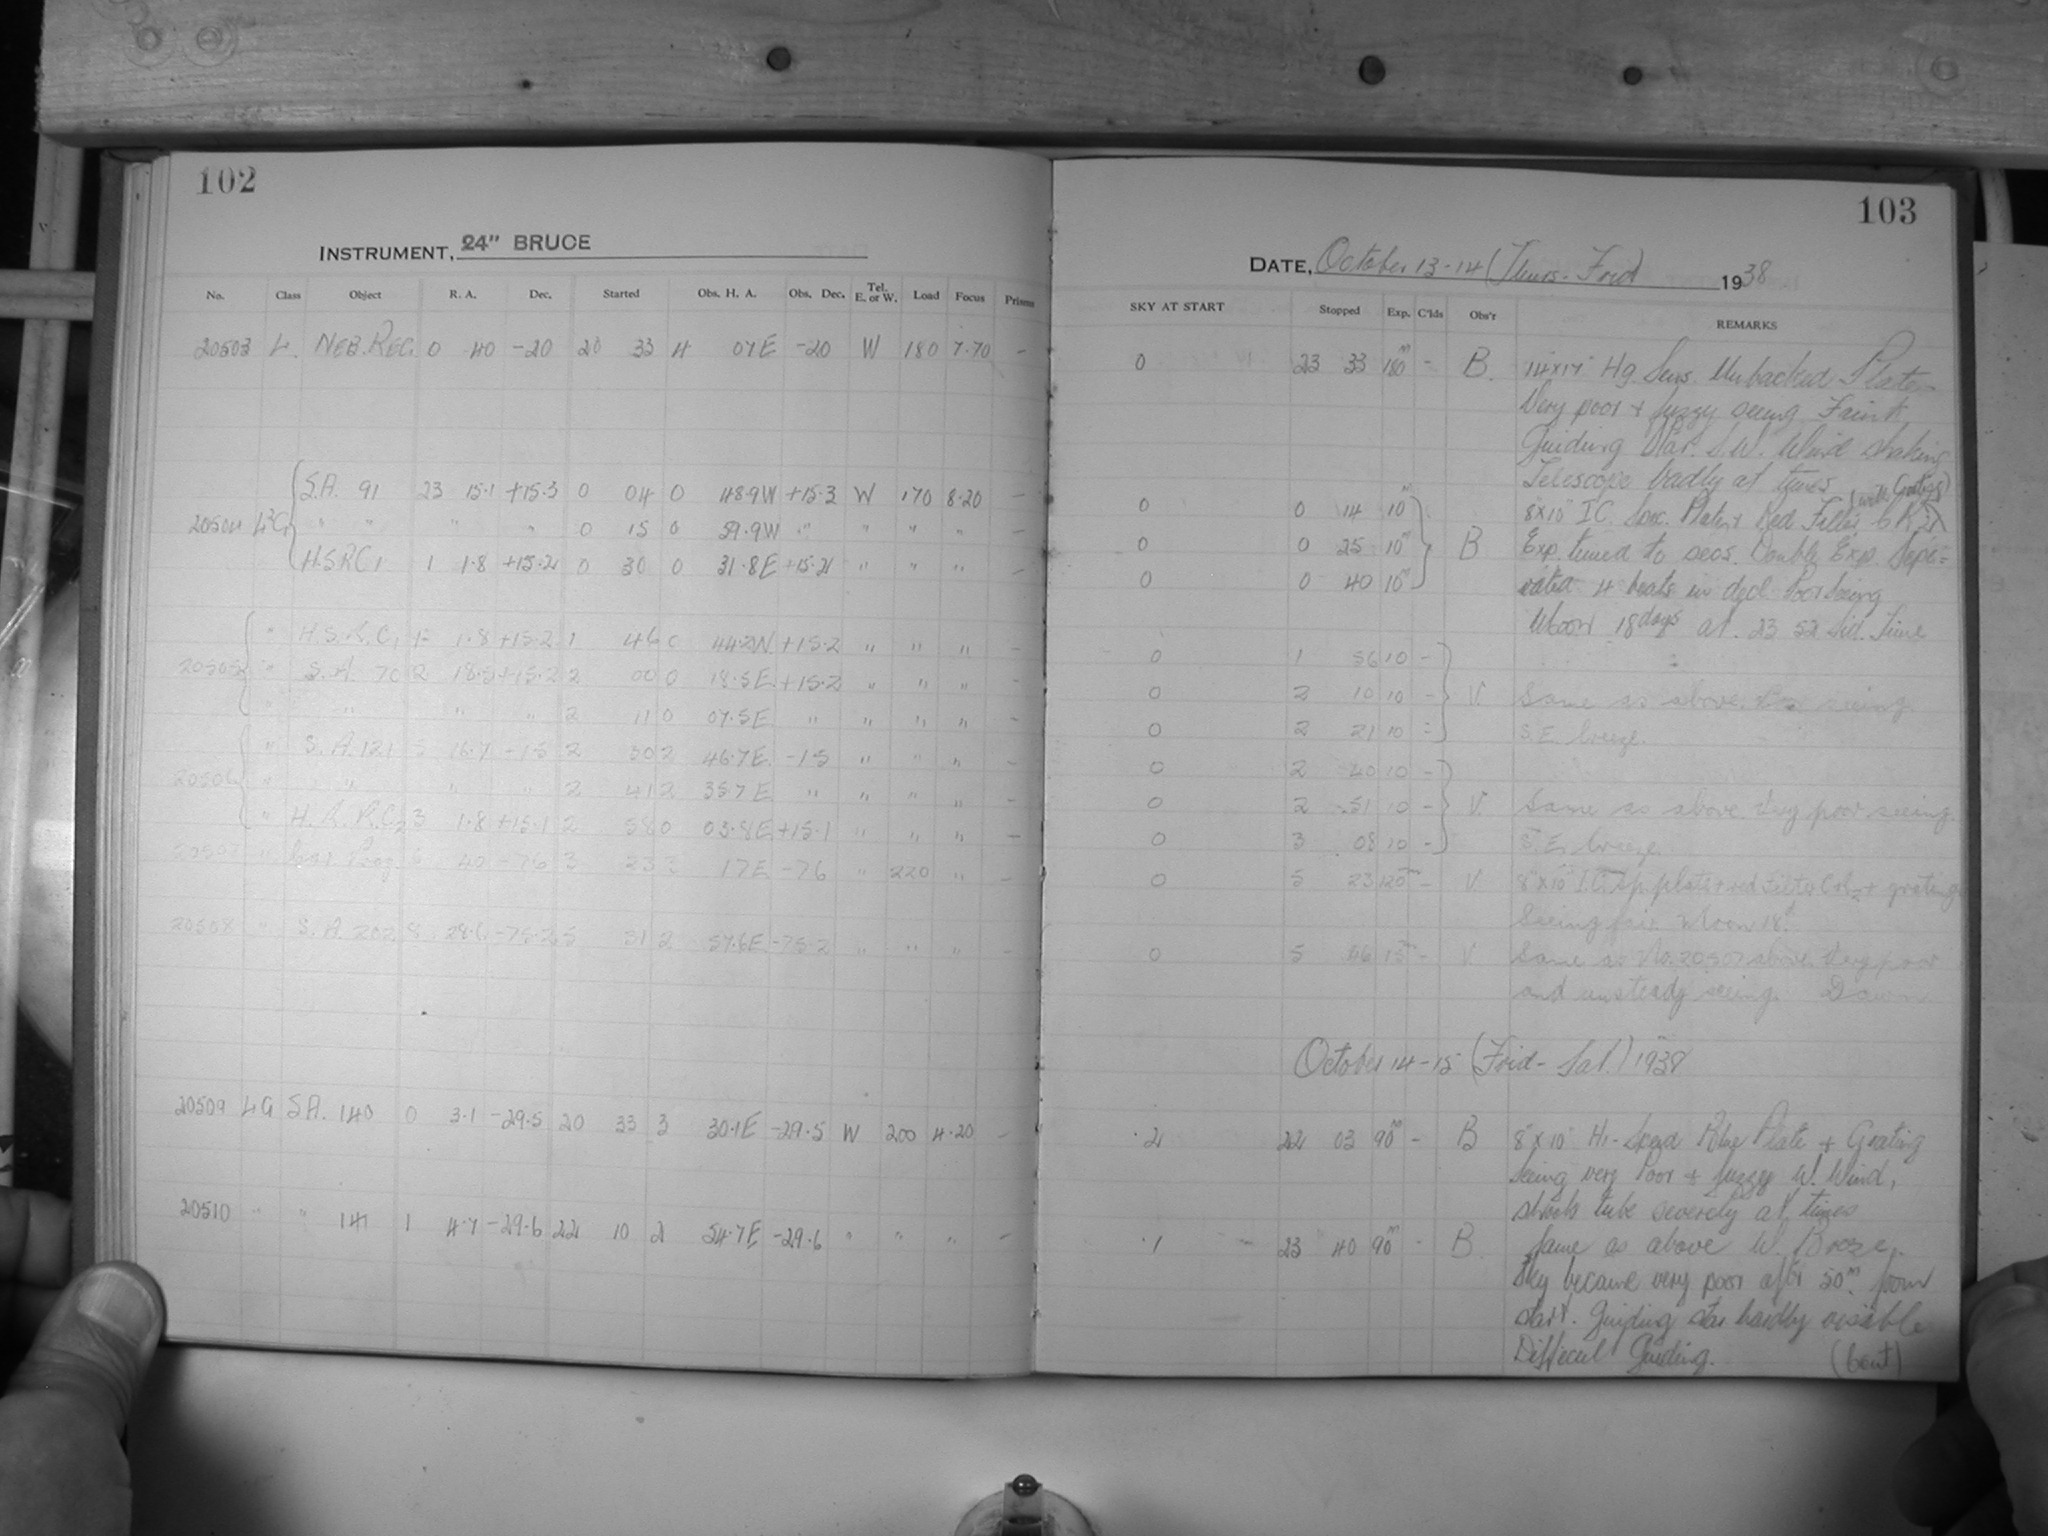 102
INSTRUMENT, 24" BRUCE
No. Class Object R. A. Dec. Started Obs. H. A. Obs. Dec. Tel. E. or W. Load Focus Prisms
20503 L. NEB. REG. 0 40 -20 20 33 4 07E -20 W 180 7.70 -
S.A. 91 23 15.1 +15.3 0 04 0 48.9W +15.3 W 170 8.20 -
20504 " " " " 0 15 0 59.9W " " " " -
H.S.R.C1 1 1.8 +15.2 0 30 0 31.8E +15.2 " " " -
" H.S.R.C1 1 1.8 +15.2 1 46 0 44.2W +15.2 " " " -
20505 " S.A. 70 2 18.5 +15.2 2 00 0 18.5E +15.2 " " " -
" " " " 2 11 0 07.5E " " " " -
" S.A. 121 5 16.7 -1.5 2 30 2 46.7E -1.5 " " " -
20506 " " " " 2 41 2 35.7E " " " " -
" H.S.R.C2 3 1.8 +15.1 2 58 0 03.8E +15.1 " " " -
20507 " 6 40 -76 3 23 3 17E -76 " 220 " -
20508 " S.A. 202 8 28.6 -75.2 5 31 2 57.6E -75.2 " " " -
20509 LG S.A. 140 0 3.1 -29.5 20 33 3 30.1E -29.5 W 200 4.20 -
20510 " " 141 1 4.7 -29.6 22 10 2 54.7E -29.6 " " " -
103
DATE, October 13-14 (Thurs-Frid) 1938
SKY AT START Stopped Exp. C'lds Obs'r REMARKS
0 23 33 180m - B. 14x17 Hg. Sens. Unbacked Plate
Very poor + fuzzy seeing Faint
Guiding Star. S.W. Wind shaking
Telescope badly at times
(with Grating)
0 0 14 10m 8"x10" I.C. Plate + Red Filter
0 0 25 10m B Exp. timed to secs. Double Exp. Sepe-
0 0 40 10m rated 4 beats in decl. Poor Seeing
Moon 18 days at 23 52 Sid. Time
0 1 56 10 -
0 2 10 10 - V. Same as above. seeing.
0 2 21 10 - S.E. breeze.
0 2 40 10 -
0 2 51 10 - V. Same as above. Very poor seeing.
0 3 08 10 - S.E. breeze.
0 5 23 120m - V 8"x10" I.C. Sp. plate + red filter + grating
Seeing fair. Moon 18d.
0 5 46 15m - V Same as No. 20507 above. Very poor
and unsteady seeing. Dawn.
October 14-15 (Frid-Sat.) 1938
.2 22 03 90m - B 8"x10" Hi-Speed Blue Plate + Grating
Seeing very Poor + fuzzy W. Wind,
shook tube severely at times
.1 23 40 90m - B. Same as above W. Breeze.
Sky became very poor after 50m. from
start. Guiding star hardly visible
Difficult Guiding. (Cont)